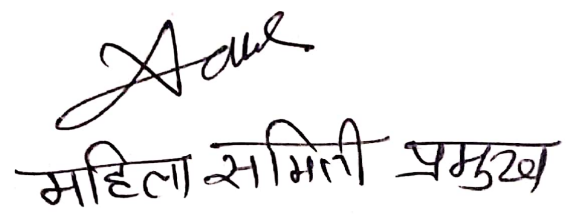 महिला समिती प्रमुख